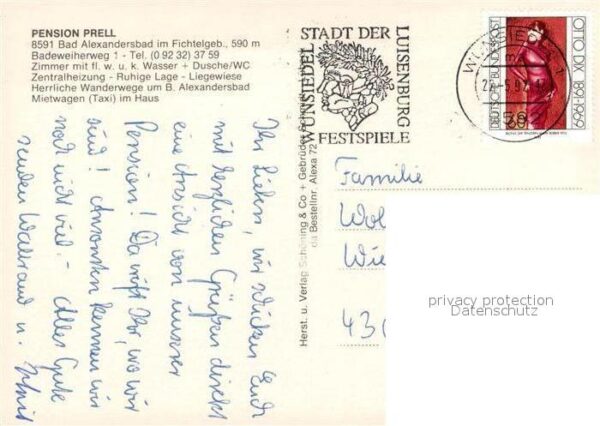 PENSION PRELL
8591 Bad Alexandersbad im Fichtelgeb., 590 m
Badeweiherweg 1 - Tel. (0 92 32) 37 59
Zimmer mit fl. w. u. k. Wasser + Dusche/WC
Zentralheizung - Ruhige Lage - Liegewiese
Herrliche Wanderwege um B. Alexandersbad
Mietwagen (Taxi) im Haus
Ihr Lieben, wir schicken Euch
mit herzlichen Grüßen direkt
eine Ansicht von unserer
Pension! Da wißt Ihr, wo wir
sind! Ansonsten kennen wir
noch nicht viel. - Alles Gute
senden Waltraud u.
Herst. u. Verlag Schöning & Co + Gebrüder
Bestellnr. Alexa 72
STADT DER
LUISENBURG
FESTSPIELE
WUNSIEDEL
WUNSIEDEL 1
DEUTSCHE BUNDESPOST
OTTO DIX 1891-1969
Familie
Wol
Wie
43
privacy protection
Datenschutz